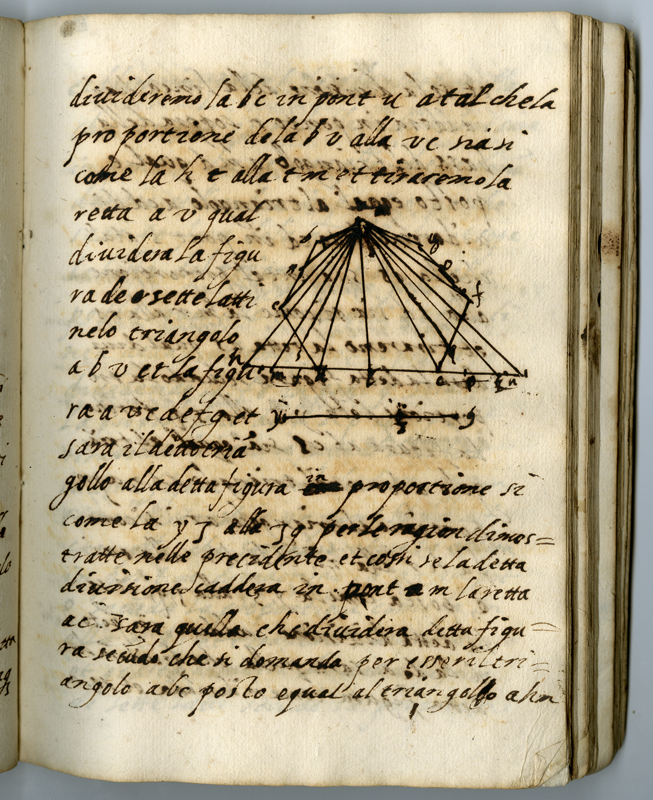 divideremo la bc in pont u atal che la
proportione de la b v alla vc sia si
come la h t alla t m et tiraremo la
retta a v qual
dividera la figu
ra de sette latti
nelo triangolo
a b v et la figu
ra a v c d e f g et
sara il detto tria
gollo alla detta figura in proportione si
come la y z alla z q per le ragion dimos=
tratte nelle precidente et cossi se la detta
divisione caddera in pont m la retta
ac sara quella che dividera detta figu=
ra secudo che si domanda per esser il tri=
angolo abc posto equal al triangollo ahn